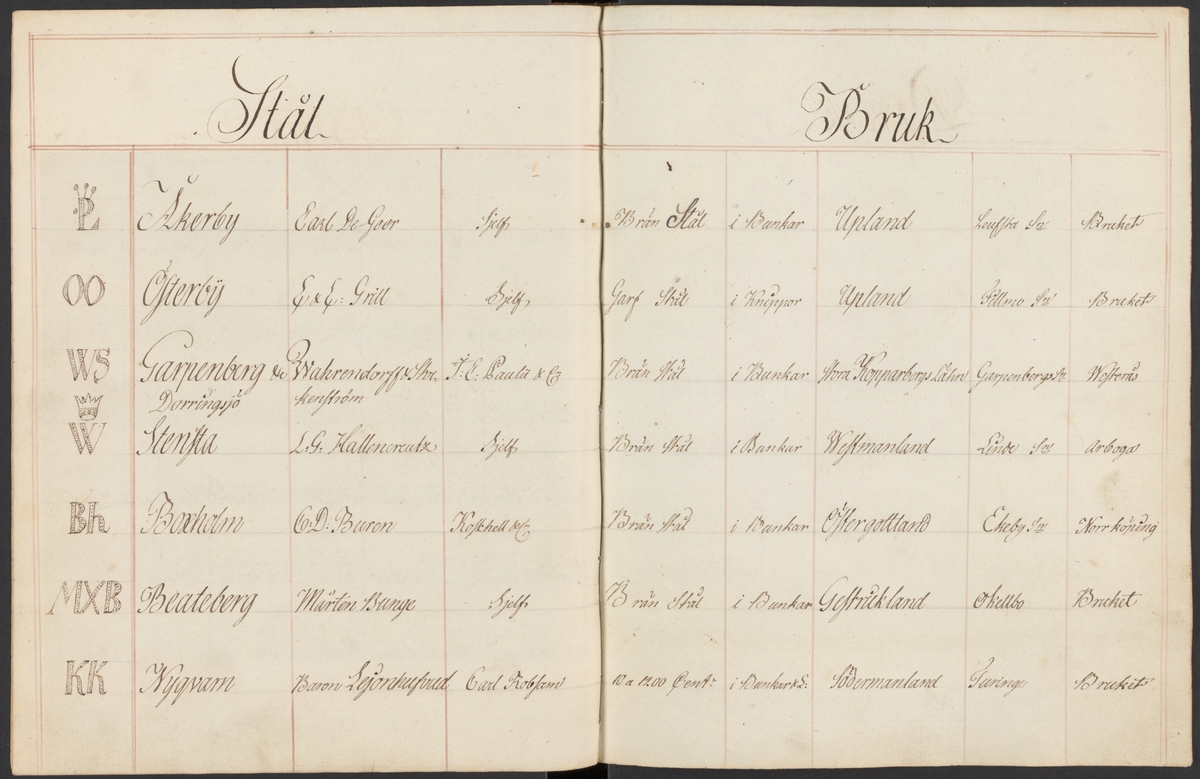 Stål Bruk
PL Åkerby Carl De Geer Sjelf Brän Stål i Bunkar Upland Leufsta Sn Bruket
OO Österby C & C: Grill Sjelf Garf Stål i Knippor Upland Fillmo Sn Bruket
WS Garpenberg & Wahrendorff & Sto- J: E: Pauli & C Brän Stål i Bunkar Stora Kopparbergs Lähn Garpenbergs Sn Westerås
Dorringsjö kenström
W Stensta L: G: Hallencreutz Sjelf Brän Stål i Bunkar Westmanland Linde Sn Arboga
Bh Boxholm C: D: Buren Koschell & C Brän Stål i Bunkar Östergottland Ekeby Sn Norrköping
MXB Beateberg Mårten Bunge Sjelf Brän Stål i Bunkar Gestrickland Okellbo Bruket
KK Nyqvarn Baron Lejonhufvud Carl Robsam 10 a 1200 Cent: i Bunkar & L: Södermanland Turinge Bruket